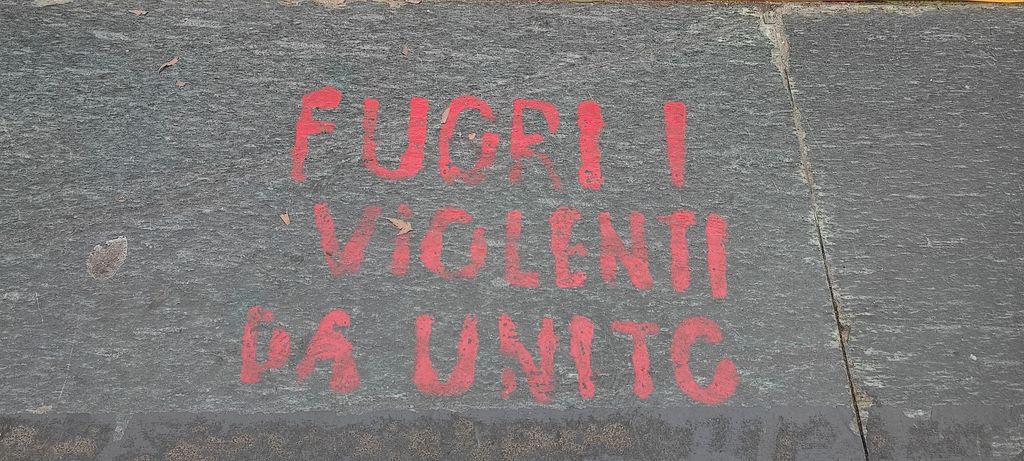 FUORI I
VIOLENTI
DA UNITO